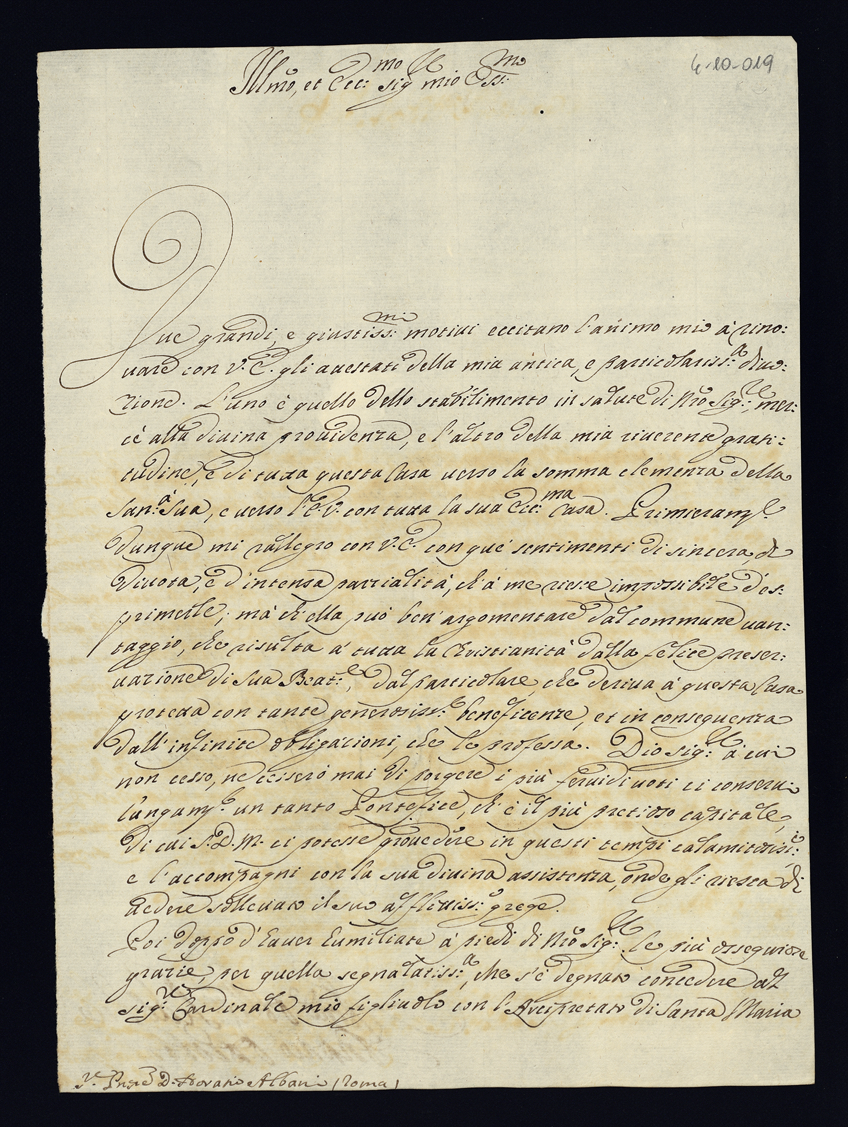 4-20-019
Illmo, et Ecc:mo Sigr mio Oss:mo
Due grandi, e giustiss:mi motivi eccitano l'animo mio à rino:
vare con V.E. gli attestati della mia antica, e particolariss:a divo:
zione. L'uno è quello dello stabilimento in salute di Nrò Sig:re, mer:
cè alla divina providenza, e l'altro della mia riverente grati:
tudine, e di tutta questa Casa verso la somma clemenza della
San:à Sua, e verso l'E.V. con tutta la sua Ecc:ma Casa. Primieramte
dunque mi rallegro con V.E. con que' sentimenti di sincera, di
divota, e d'intensa parzialità, ch'à me riesce impossibile d'es:
primerle; mà ch'ella può ben'argomentare dal commune van:
taggio, che risulta à tutta la Christianità dalla felice preser:
vazione di Sua Beat:e, dal particolare, che deriva à questa Casa
protetta con tante generosiss:e beneficenze, et in conseguenza
dall'infinite obligazioni, che le professa. Dio Sig:re à cui
non cesso, ne cesserò mai di porgere i più fervidi voti ci conservi
lungamte un tanto Pontefice, ch'è il più pretioso capitale,
di cui S.D.M. ci potesse provedere in questi tempi calamitosiss:i
e l'accompagni con la sua divina assistenza, onde gli riesca di
vedere sollevato il suo afflittiss:o grege.
Poi doppo d'haver humiliate à piedi di Nrò Sig:re le più ossequiose
grazie, per quella segnalatiss:a, che s'è degnato concedere al
Sig:r Cardinale mio figliuolo con l'Arcipretato di Santa Maria
Sr. D. Horatio Albani (Roma)